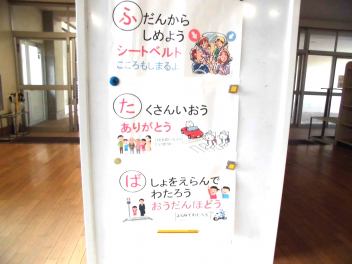 ふだんから
しめよう
シートベルト
こころもしまるよ
たくさんいおう
ありがとう
ばしょをえらんで
わたろう
おうだんほどう